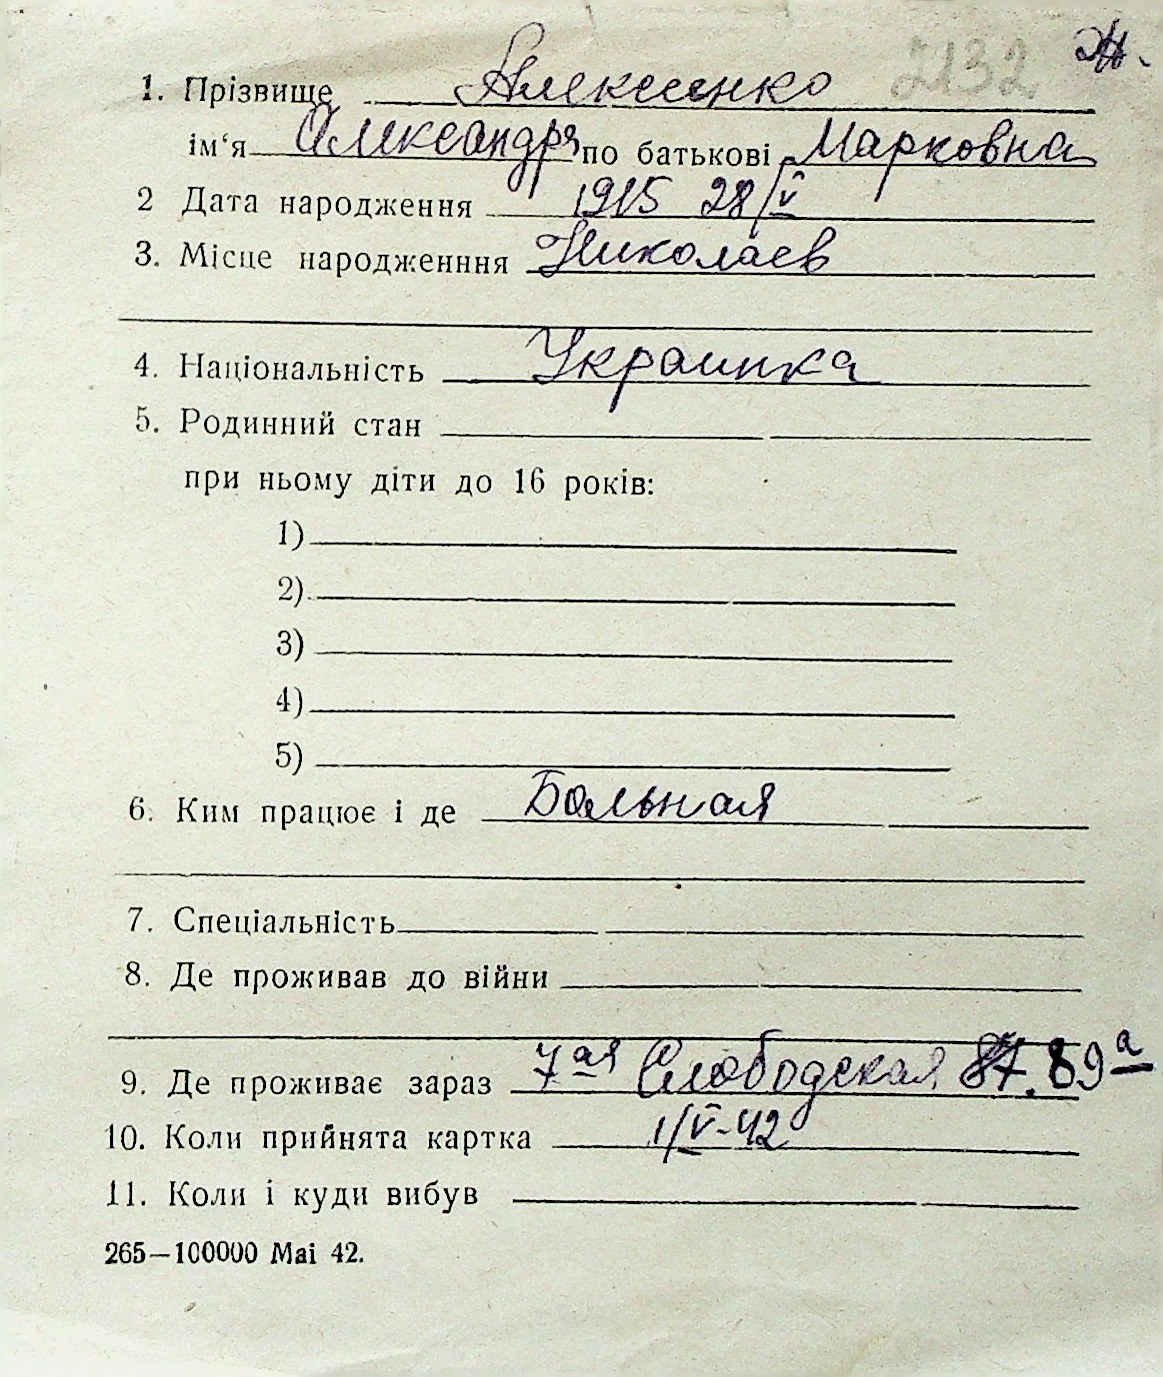 2132 Ж.
1. Прізвище Алексеенко
ім‘я Александра по батькові Марковна
2 Дата народження 1915 28/V
3. Місце народженння Николаев
4. Національність Украинка
5. Родинний стан
при ньому діти до 16 років:
1)
2)
3)
4)
5)
6. Ким працює і де Больная
7. Спеціальність
8. Де проживав до війни
9. Де проживає зараз 7ая Слободская 87. 89а
10. Коли прийнята картка 1/V-42
11. Коли і куди вибув
265—100000 Mai 42.